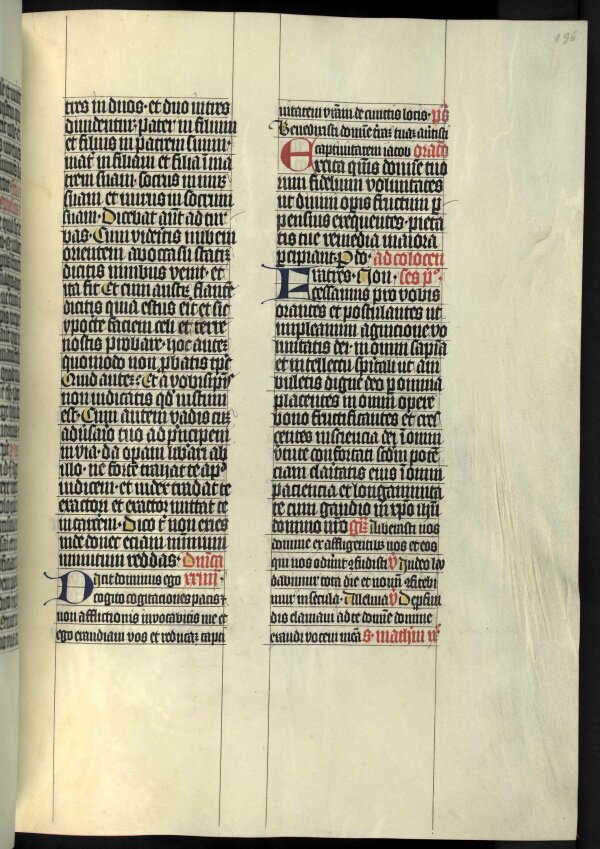 196
tres in duos · et duo in tres
diuidentur · Pater in filium
et filius in patrem suum ·
mat' in filiam et filia ī ma
trem suam · socrus in nurū
suam et nurus in socrum
suam · Dicebat aūt ad tur
bas · Cum videritis nubem
orientem ab occasu statī
dicitis nimbus venit · et
ita fit · Et cum austrū flantē
dicitis quia estus erit et fit
ypocrite faciem celi et terre
nostis probare · hoc autez
quomodo non probatis tp̄s
Quid autez · Et a vobis ipīs
non iudicatis qd iustum
est · Cum autem vadis cuz
aduersario tuo ad principem
in via · da operam liberari ab
illo · ne forte trahat te apd
iudicem · et iudex tradat te
exactori et exactor mittat te
in carcerem · Dico t' non exies
inde donec etiam minutum
minutum reddas · Dn̄ica
Dicit dominus ego xxiiii ·
cogito cogitaciones pacis et
non afflictionis inuocabitis me et
ego exaudiam vos et reducaz capti
uitatem vrām de cunctis locis · ps
Benedixisti domīe terrā tuaz auertisti
captiuitatem iacob oracō
Excita qūs domīe tuo
rum fidelium voluntates
ut diuini opis fructum p
pensius exequentes · pieta
tis tue remedia maiora
percipiant · P do · ad colocen
Fratres · Non · ses p° ·
cessamus pro vobis
orantes et postulantes ut
impleamini agnicione vo
luntatis dei · in omni sapīa
et intellectu spiritali ut am
buletis digne deo p omnia
placentes in omni opere
bono fructificantes et cres
centes in sciencia dei ī omni
virtute confortati scdm poten
ciam claritatis eius ī omni
paciencia et longanimita
te cum gaudio in xp̄o ihū
domino nrō gr · Liberasti nos
domine ex affligentibus nos et eos
qui nos oderūt cōfudisti V In deo lau
dabimur tota die et noīi tuo cōfitebi
mur in secula · Alleluia V De pfun
dis clamaui ad te domine domine
exaudi vocem meā S · mathm vs